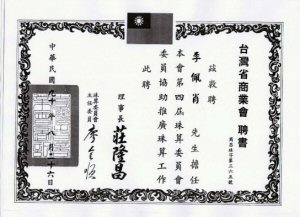 台灣省商業會 聘書
商總珠字第三六五號
茲敦聘
李佩肖 先生擔任
本會第四屆珠算委員會
委員協助推廣珠算工作
此聘
理事長 莊隆昌
珠算委員會
主任委員
中華民國九十年八月廿六日